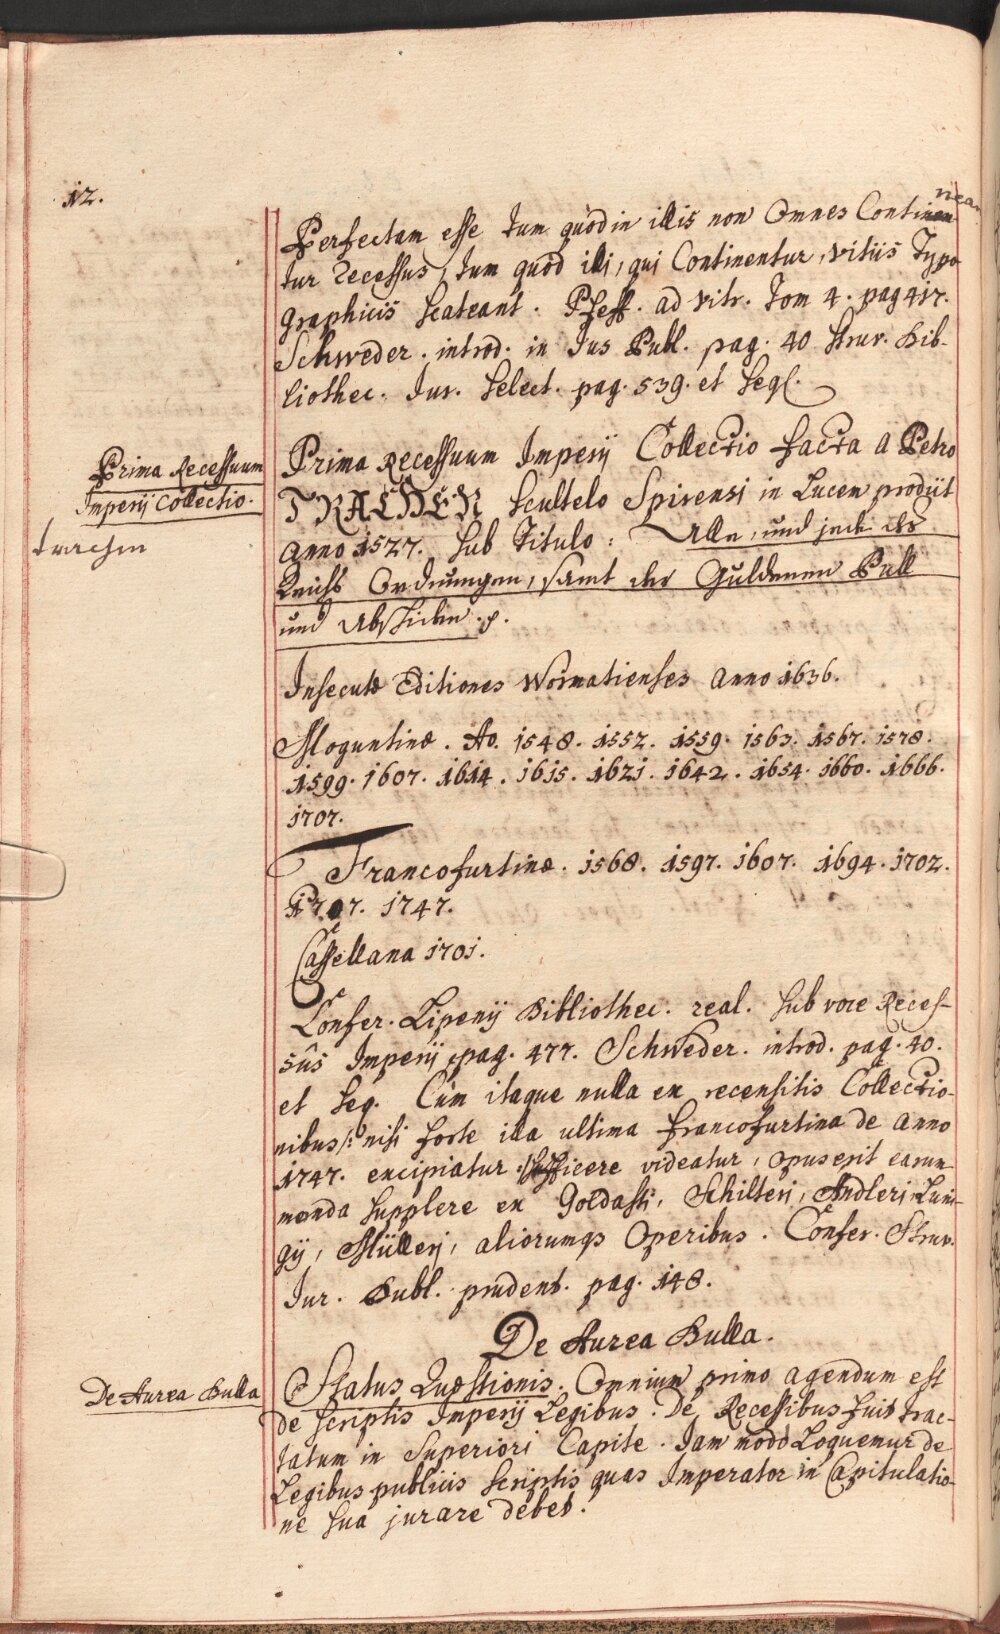 12.
Perfectam esse tum quod in illis non Omnes Continean
tur Recessus, tum quod illi, qui Continentur, vitiis Typo
graphicis scateant. Pfeff. ad vitr. Tom 4. pag 417.
Schweder. introd. in Jus Publ. pag. 40 Struv. Bib-
liothec. Jur. Select. pag. 539. et seq.
Prima Recessuum
Imperij Collectio.
trachen
Prima Recessuum Imperij Collectio facta a Petro
TRACHEN Scultelo Spirensi in Lucem prodiit
Anno 1527. sub Titulo: Alle, und jede des
Reichs Ordnungen, samt der Guldenen Bull
und Abschieden.
Insecutæ Editiones Wormatienses Anno 1636.
Moguntinæ. Ao. 1548. 1552. 1559. 1563. 1567. 1578.
1599. 1607. 1614. 1615. 1621. 1642. 1654. 1660. 1666.
1707.
Francofurtinæ. 1568. 1597. 1607. 1694. 1702.
1707. 1747.
Cassellana 1701.
Confer. Lipenij Bibliothec. real. sub voce Reces-
sûs Imperij pag. 477. Schweder. introd. pag. 40.
et seq. Cum itaque nulla ex recensitis Collectio-
nibus /: nisi forte illa ultima francofurtina de Anno
1747. excipiatur sufficere videatur, opus erit earum
menda supplere ex Goldasti, Schilteri, Andleri, Luni-
gij, Mülleri, aliorumqs Operibus. Confer. Struv.
Jur. Publ. prudent. pag. 148.
De Aurea Bulla.
De Aurea Bulla
Status Quæstionis. Omnium primo agendum est
de scriptis Imperij Legibus. De Recessibus fuit trac-
tatum in Superiori Capite. Jam modo Loquemur de
Legibus publicis scriptis quas Imperator in Capitulatio-
ne sua jurare debet.